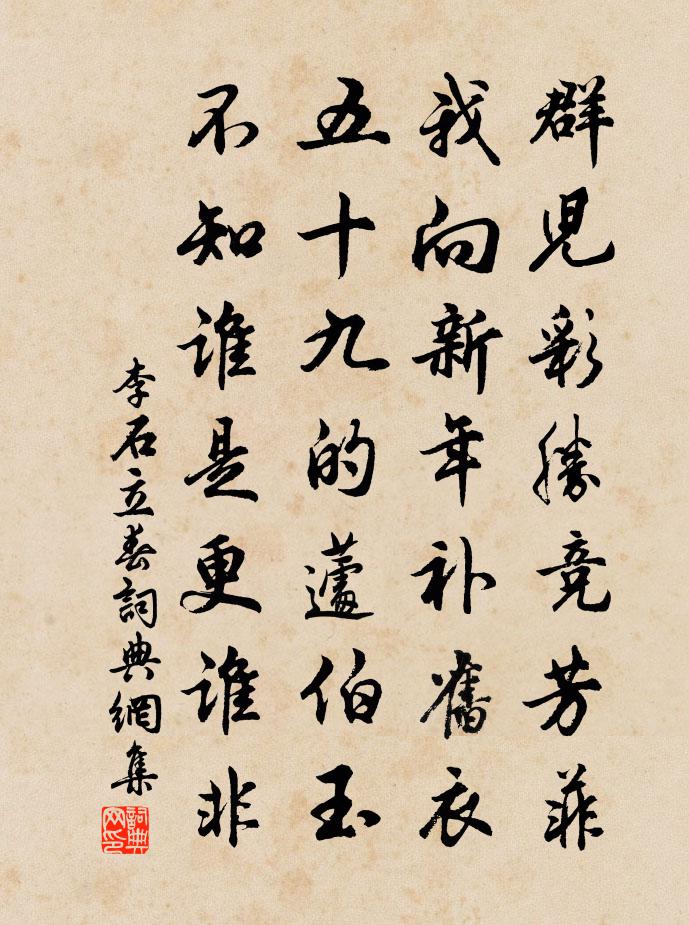 群児彩勝竞芳菲
我向新年补舊衣
五十九的蘧伯玉
不知谁是更谁非
李石立春詞典網集
詞典网印